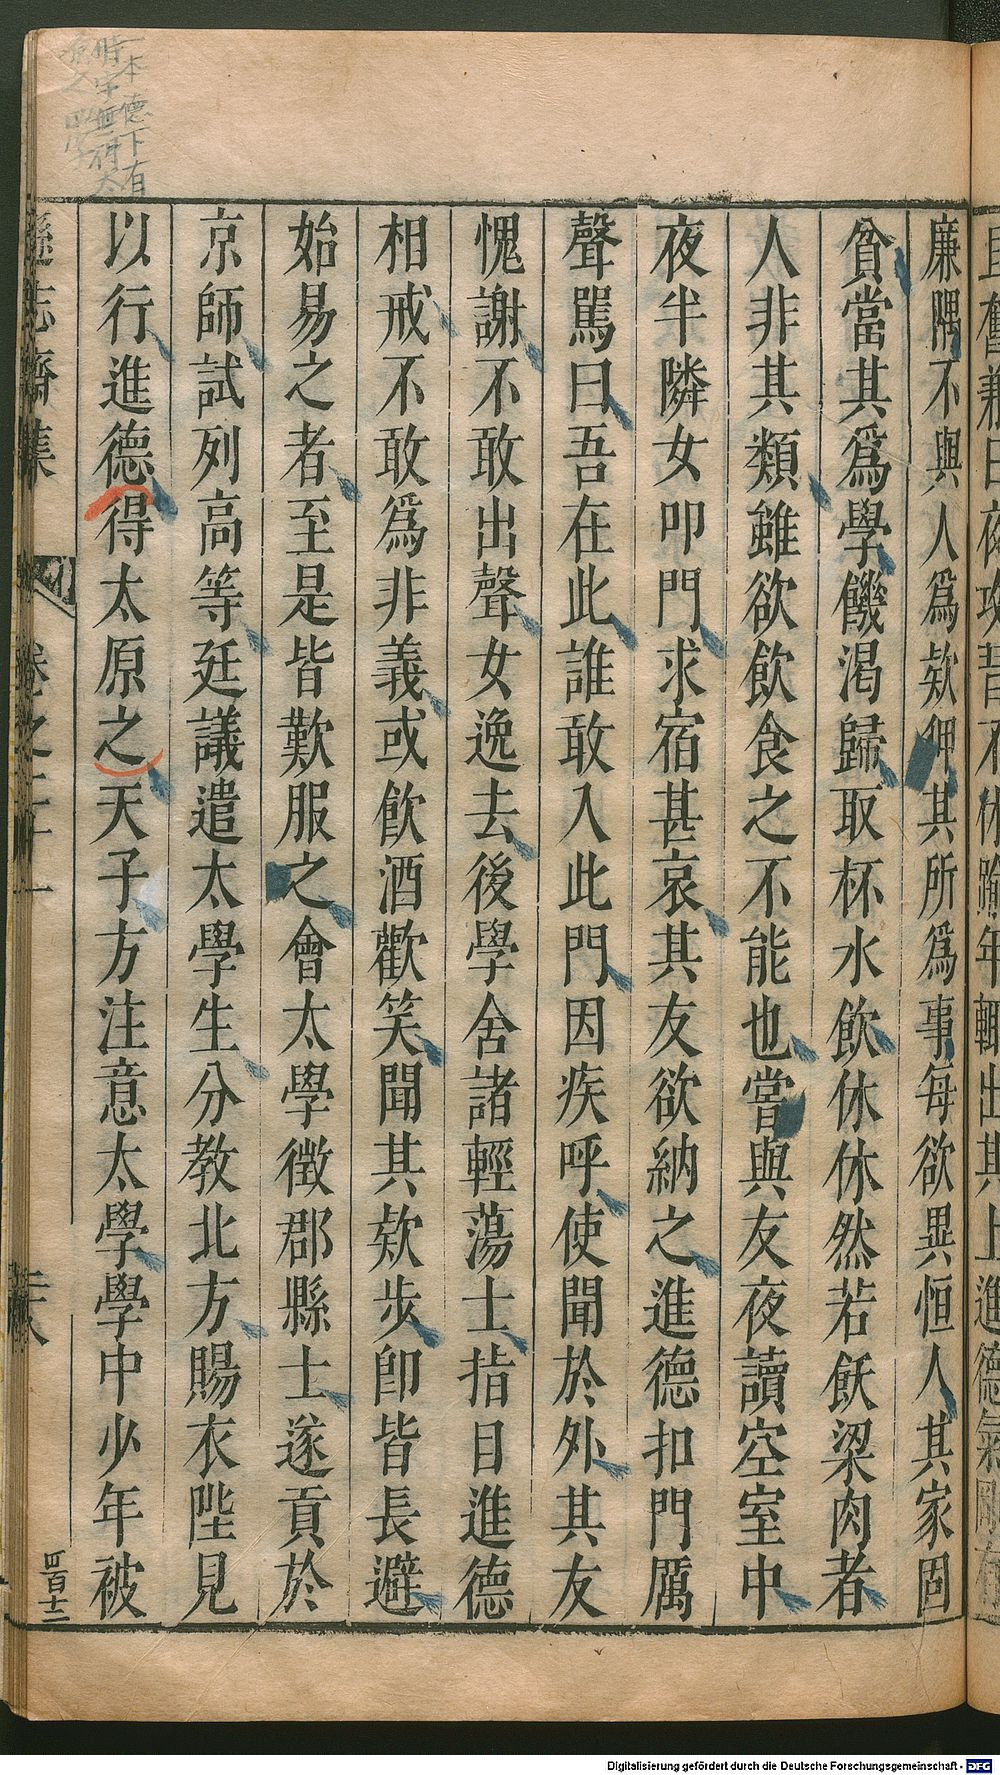 廉隅不與人爲欵狎其所爲事每欲異恒人其家固
貧當其爲學饑渴歸取杯水飲休休然若飫粱肉者
人非其類雖欲飲食之不能也嘗與友夜讀空室中
夜半隣女叩門求宿甚哀其友欲納之進德扣門厲
聲罵曰吾在此誰敢入此門因疾呼使聞於外其友
愧謝不敢出聲女逸去後學舍諸輕蕩士指目進德
相戒不敢爲非義或飲酒歡笑聞其欵步卽皆長避
始易之者至是皆歎服之會太學徴郡縣士遂貢於
京師試列高等廷議遣太學生分教北方賜衣陛見
以行進德得太原之天子方注意太學學中少年被
遜志齋集
卷之二十一
二六
四百十二
一本德下有
時字無得太
原之四字
Digitalisierung gefördert durch die Deutsche Forschungsgemeinschaft - DFG